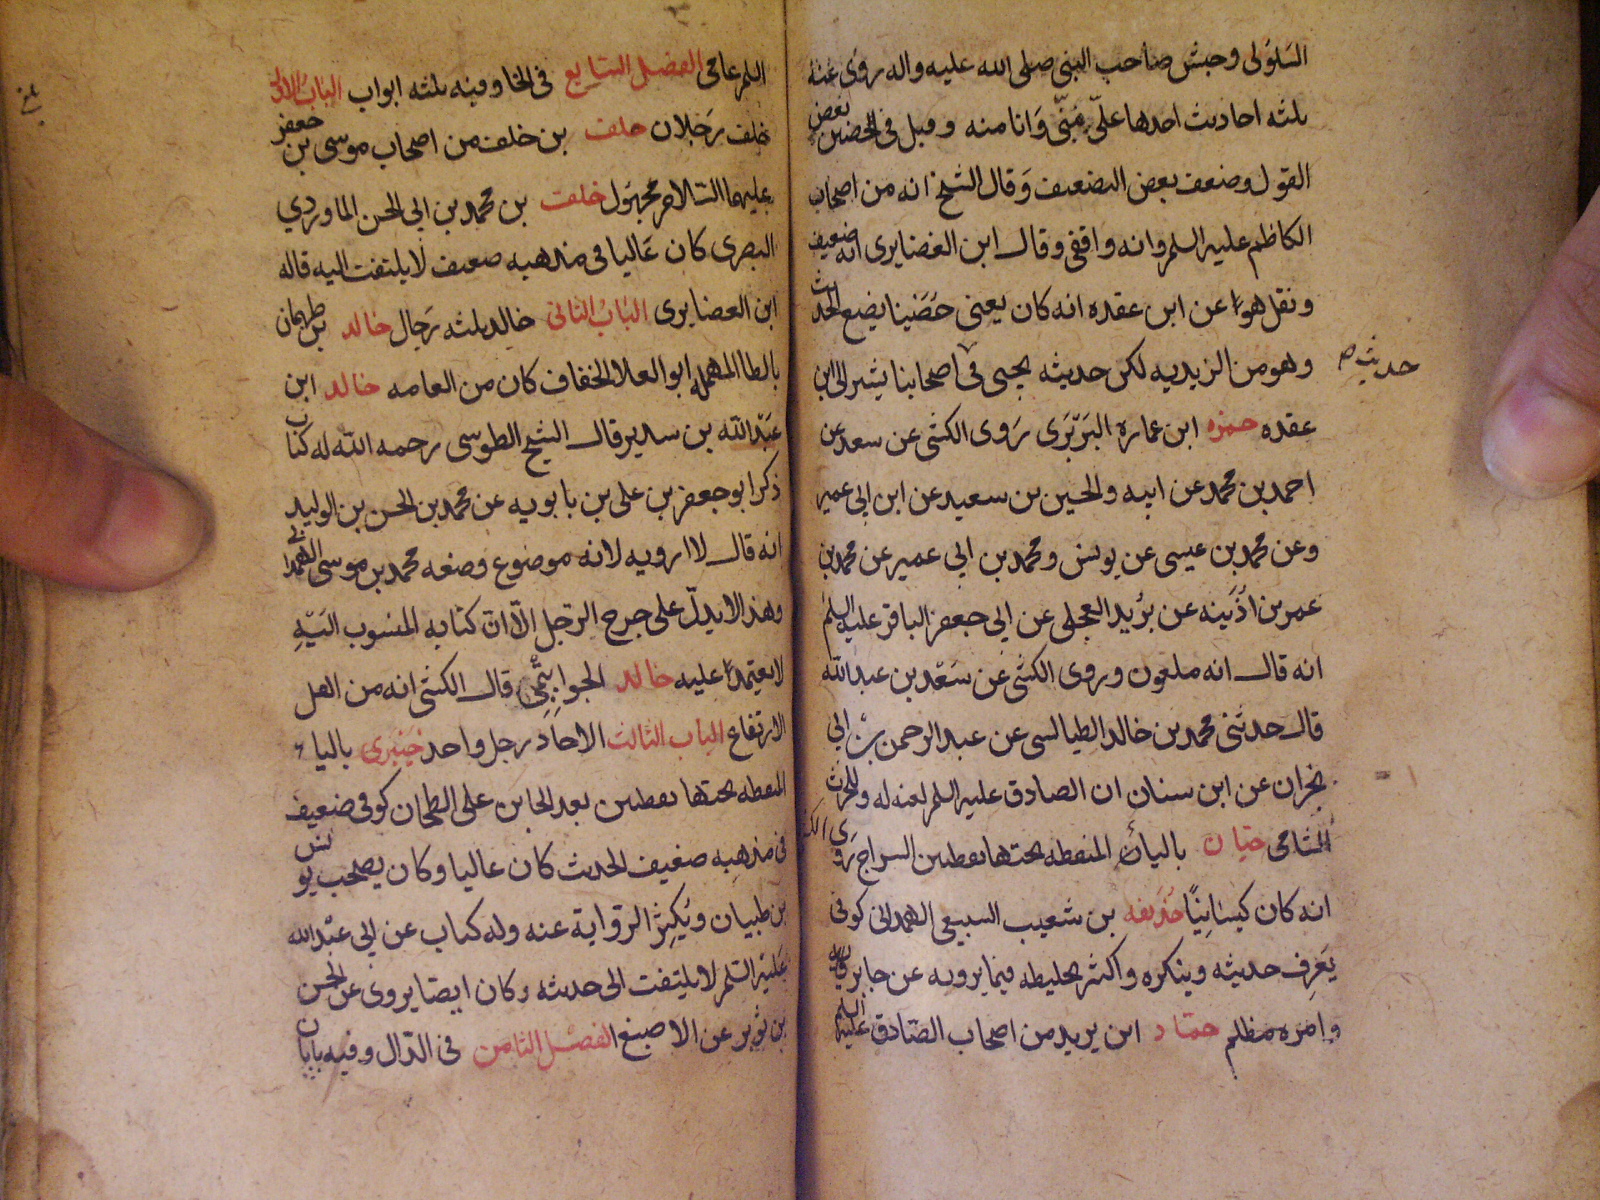 السلولي وحبش صاحب النبي صلى الله عليه واله روى عنه
ثلثه احاديث احدها علي مني وانا منه وقيل في الحضين بعض
القول وضعف بعض التضعيف وقال الشيخ انه من اصحاب
الكاظم عليه السلم وانه واقفي وقال ابن الغضايري انه ضعيف
ونقل هو عن ابن عقده انه كان يعني حضينا يضع الحديث
وهو من الزيديه لكن حديثه يجيى في اصحابنا يشير الى ابن
حديث
عقده حمزه ابن عمارة البربري روى الكشي عن سعد عن
احمد بن محمد عن ابيه والحسين بن سعيد عن ابن ابي عمير
وعن محمد بن عيسى عن يونس ومحمد بن ابي عمير عن محمد بن
عمر بن اذينه عن بريد العجلي عن ابي جعفر الباقر عليه السلم
انه قال انه ملعون وروى الكشي عن سعد بن عبد الله
قال حدثني محمد بن خالد الطيالسي عن عبد الرحمن بن ابي
نجران عن ابن سنان ان الصادق عليه السلم لعنه له وللحرث
الشامي حيان بالياء المنقطه تحتها نقطتين السراج روى الك
انه كان كيسانيا حذيفه بن شعيب السبيعي الهمداني كوفي
يعرف حديثه وينكره واكثر تخليطه فيما يرويه عن جابر
وامره مظلم حماد ابن يزيد من اصحاب الصادق عليه السلم
السلم عامي الفصل السابع في الخا وفيه ثلثه ابواب الباب الاول
خلف رجلان خلف بن خلف من اصحاب موسى بن جعفر
عليهما السلام مجهول خلف بن محمد بن ابي الحسن الماوردي
البصري كان غاليا في مذهبه ضعيف لا يلتفت اليه قاله
ابن الغضايري الباب الثاني خالد ثلثه رجال خالد بن طهمان
بالطا المهمله ابو العلا الخفاف كان من العامه خالد ابن
عبد الله بن سدير قال الشيخ الطوسي رحمه الله له كتاب
ذكر ابو جعفر بن علي بن بابويه عن محمد بن الحسن بن الوليد
انه قال لا ارويه لانه موضوع وضعه محمد بن موسى الهمداني
وهذا لا يدل على جرح الرجل الا ان كتابه المنسوب اليه
لا يعتمد عليه خالد الجوا قال الكشي انه من اهل
الارتفاع الباب الثالث الاحاد رجل واحد خيبري بالياء
المنقطه تحتها نقطتين بعد الخا بن علي الطحان كوفي ضعيف
في مذهبه ضعيف الحديث كان غاليا وكان يصحب يونس
بن ظبيان ويكثر الرواية عنه وله كتاب عن ابي عبد الله
عليه السلم لا يلتفت الى حديثه وكان ايضا يروي عن الحسن
بن ثوير عن الاصبغ الفصل الثامن في الدال وفيه بابان